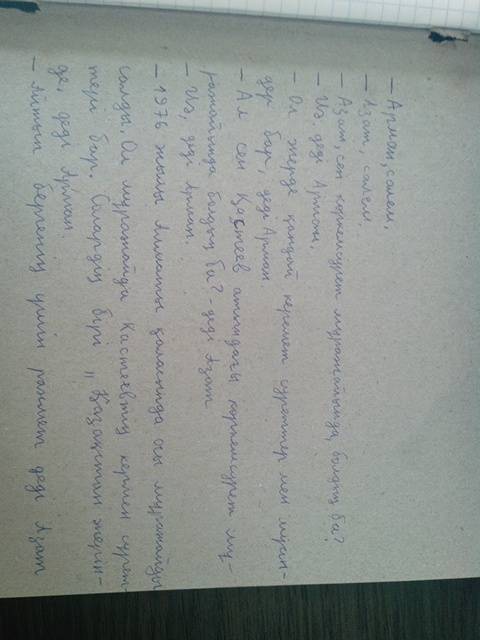 — Арман, сәлем,
— Азат, сәлем.
— Азат, сен көркемсурет мұражайында, болдың ба?
— Иә деді Арман.
— Ол жерде қандай керемет суреттер мен мұран-
дер бар, деді Арман
— Ал сен Қастеев атындағы көркемсурет мұ-
ражайында болдың ба? - деді Азат
— Иә, деді Арман.
— 1976 жылы Алматы қаласында осы мұражайды
салды. Ол мұражайда Қастеевтің көрмен сурет-
тері бар. Солардың бірі „ Қазақстан жерін-
де, деді Арман.
— Айтып бергенің үшін рахмет деді Азат